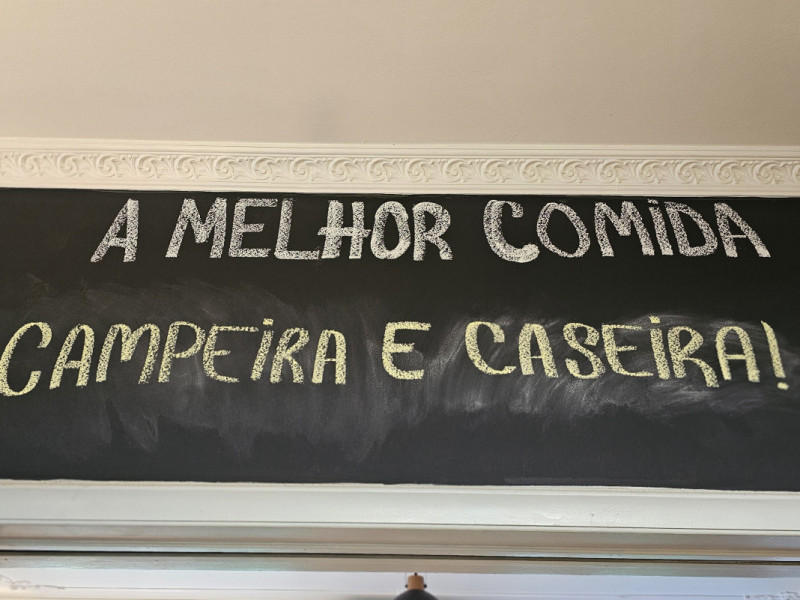 A MELHOR COMIDA
CAMPEIRA E CASEIRA!